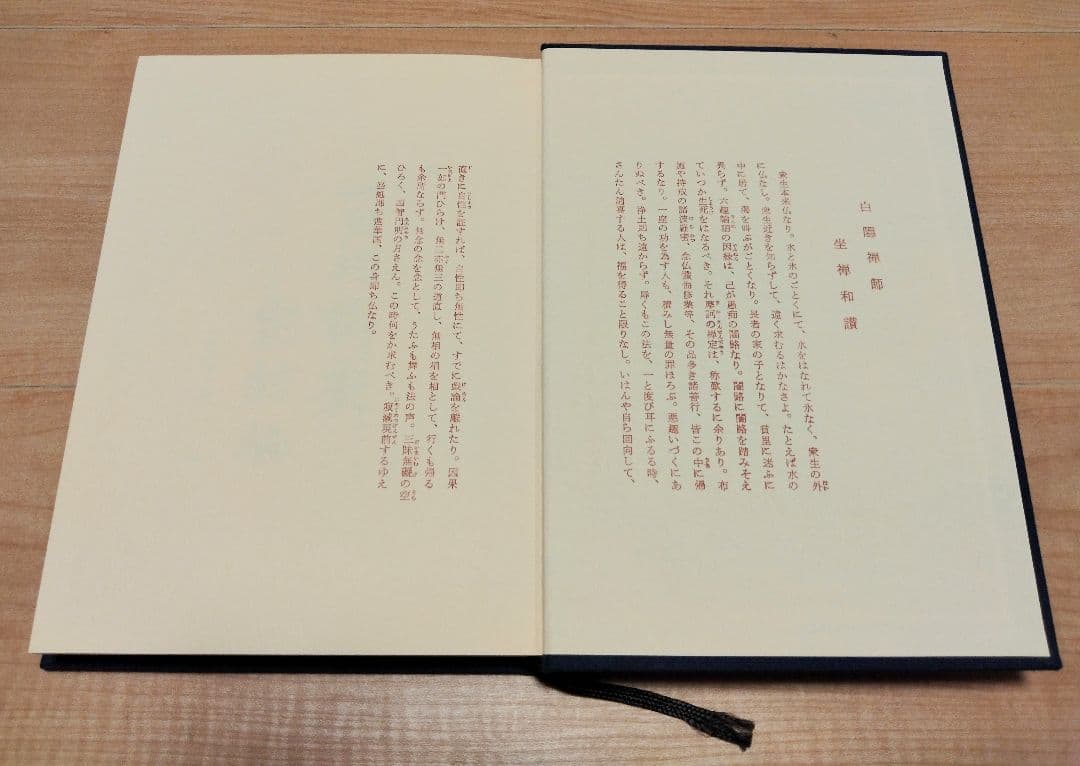 白隠禅師
坐禅和讃
衆生本来仏なり。水と氷のごとくにて、水をはなれて氷なく、衆生の外
に仏なし。衆生近きを知らずして、遠く求むるはかなさよ。たとえば水の
中に居て、渇を叫ぶがごとくなり。長者の家の子となりて、貧里に迷ふに
異らず。六趣輪廻の因縁は、己が愚痴の闇路なり。闇路に闇路を踏みそえ
ていつか生死をはなるべき。それ摩訶の禅定は、称歎するに余りあり。布
施や持戒の諸波羅蜜、念仏懺悔修業等、その品多き諸善行、皆この中に帰
するなり。一座の功を為す人も、積みし無量の罪ほろぶ。悪趣いづくにあ
りぬべき。浄土即ち遠からず。辱くもこの法を、一と度び耳にふるる時、
さんたん随喜する人は、福を得ること限りなし。いはんや自ら回向して、
直きに自性を証すれば、自性即ち無性にて、すでに戯論を離れたり。因果
一如の門ひらけ、無二亦無三の道直し、無相の相を相として、行くも帰る
も余所ならず。無念の念を念として、うたふも舞ふも法の声。三昧無礙の空
ひろく、四智円明の月さえん。この時何をか求むべき。寂滅現前するゆえ
に、当処即ち蓮華国、この身即ち仏なり。